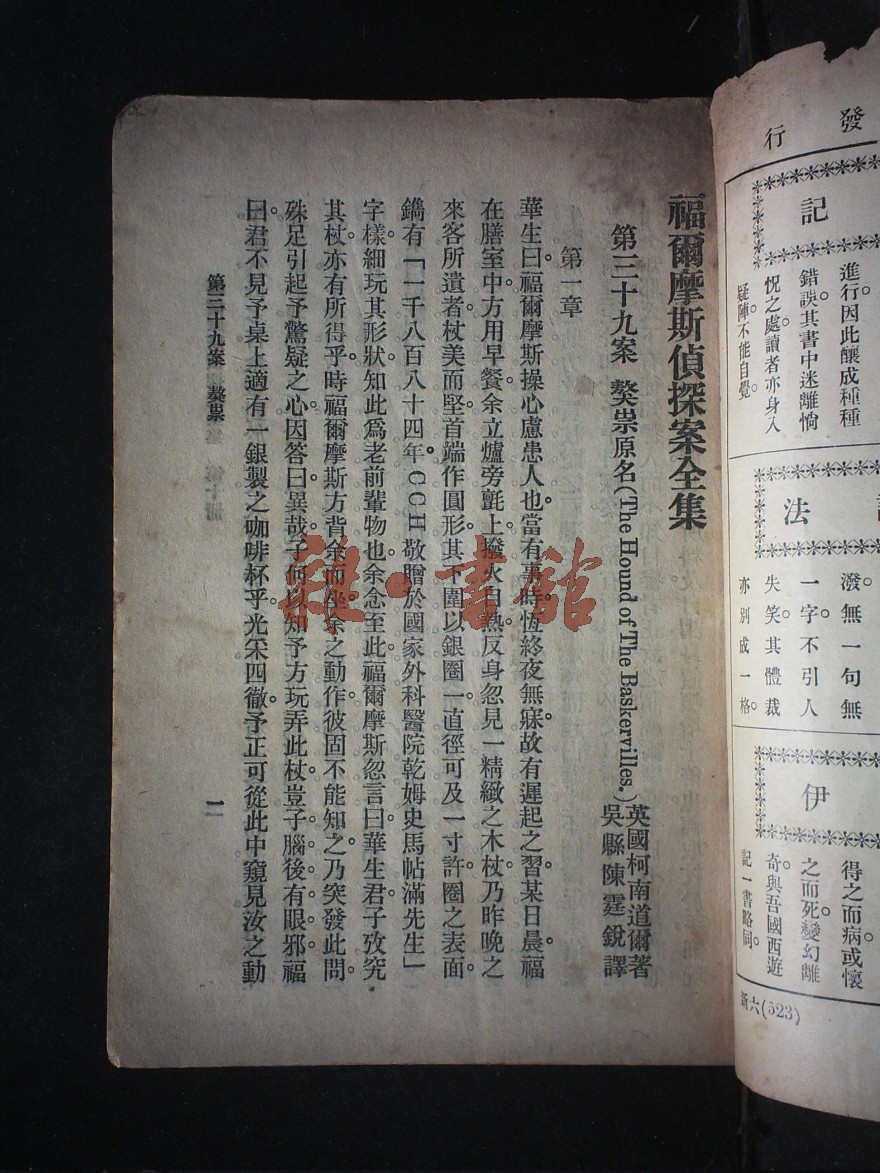 發行
記
進行因此釀成種種
錯誤。其書中迷離惝
怳之處。讀者亦身入
疑陣。不能自覺。
法
潑無一句無
一字不引人
失笑。其體裁
亦別成一格。
伊
得之而病或懷
之而死。變幻離
奇。與吾國西遊
記一書略同。
新六(523)
福爾摩斯偵探案全集
第三十九案 獒祟原名(The Hound of The Baskervilles.)
英國柯南道爾著
吳縣陳霆銳譯
第一章
華生曰。福爾摩斯操心慮患人也。當有事時。恆終夜無寐。故有遲起之習。某日晨。福
在膳室中。方用早餐。余立爐旁氈上。撥火自熱。反身忽見一精緻之木杖。乃昨晚之
來客所遺者。杖美而堅。首端作圓形。其下圍以銀圈一。直徑可及一寸許。圈之表面。
鐫有「一千八百八十四年。CCH敬贈於國家外科醫院乾姆史馬帖滿先生」
字樣。細玩其形狀。知此爲老前輩物也。余念至此。福爾摩斯忽言曰。華生君。子攷究
其杖。亦有所得乎。時福爾摩斯方背余而坐。余之動作。彼固不能知之。乃突發此問。
殊足引起予驚疑之心。因答曰。異哉。子何以知予方玩弄此杖。豈子腦後有眼邪。福
曰。君不見予桌上適有一銀製之咖啡杯乎。光采四徹。予正可從此中窺見汝之動
第三十九案 獒祟
一
雜·書館